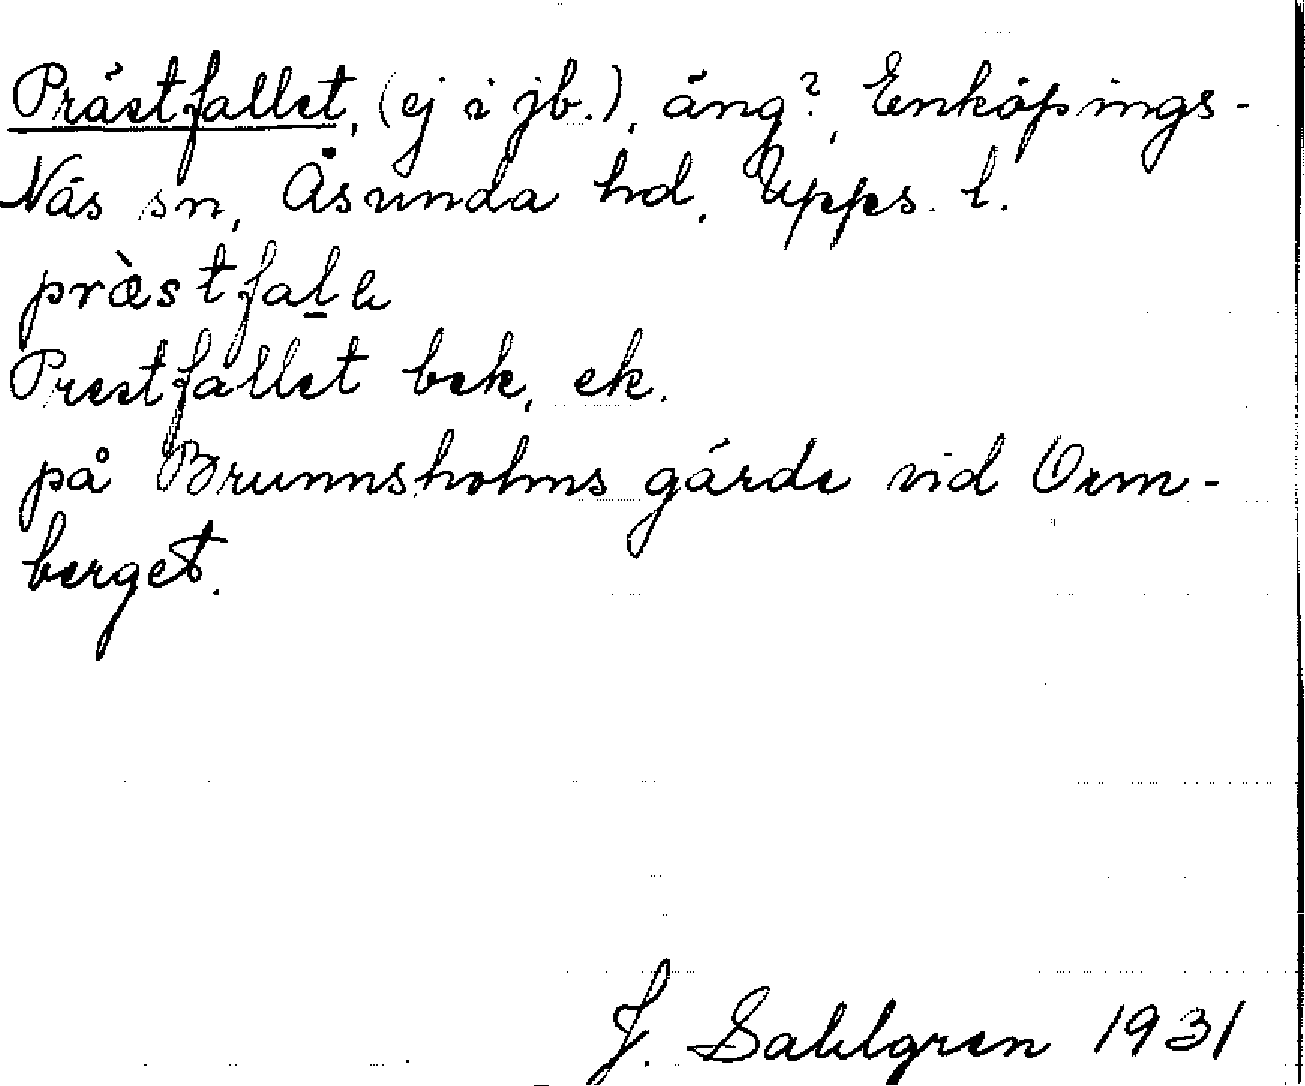 Prästfallet, (ej i jb.), äng?, Enköpings-
Näs sn, Åsunda hd, Upps. l.
præ̀stfal̲e
Prestfallet bek, ek.
på Brunnsholms gärde vid Orm-
berget.
J. Sahlgren 1931